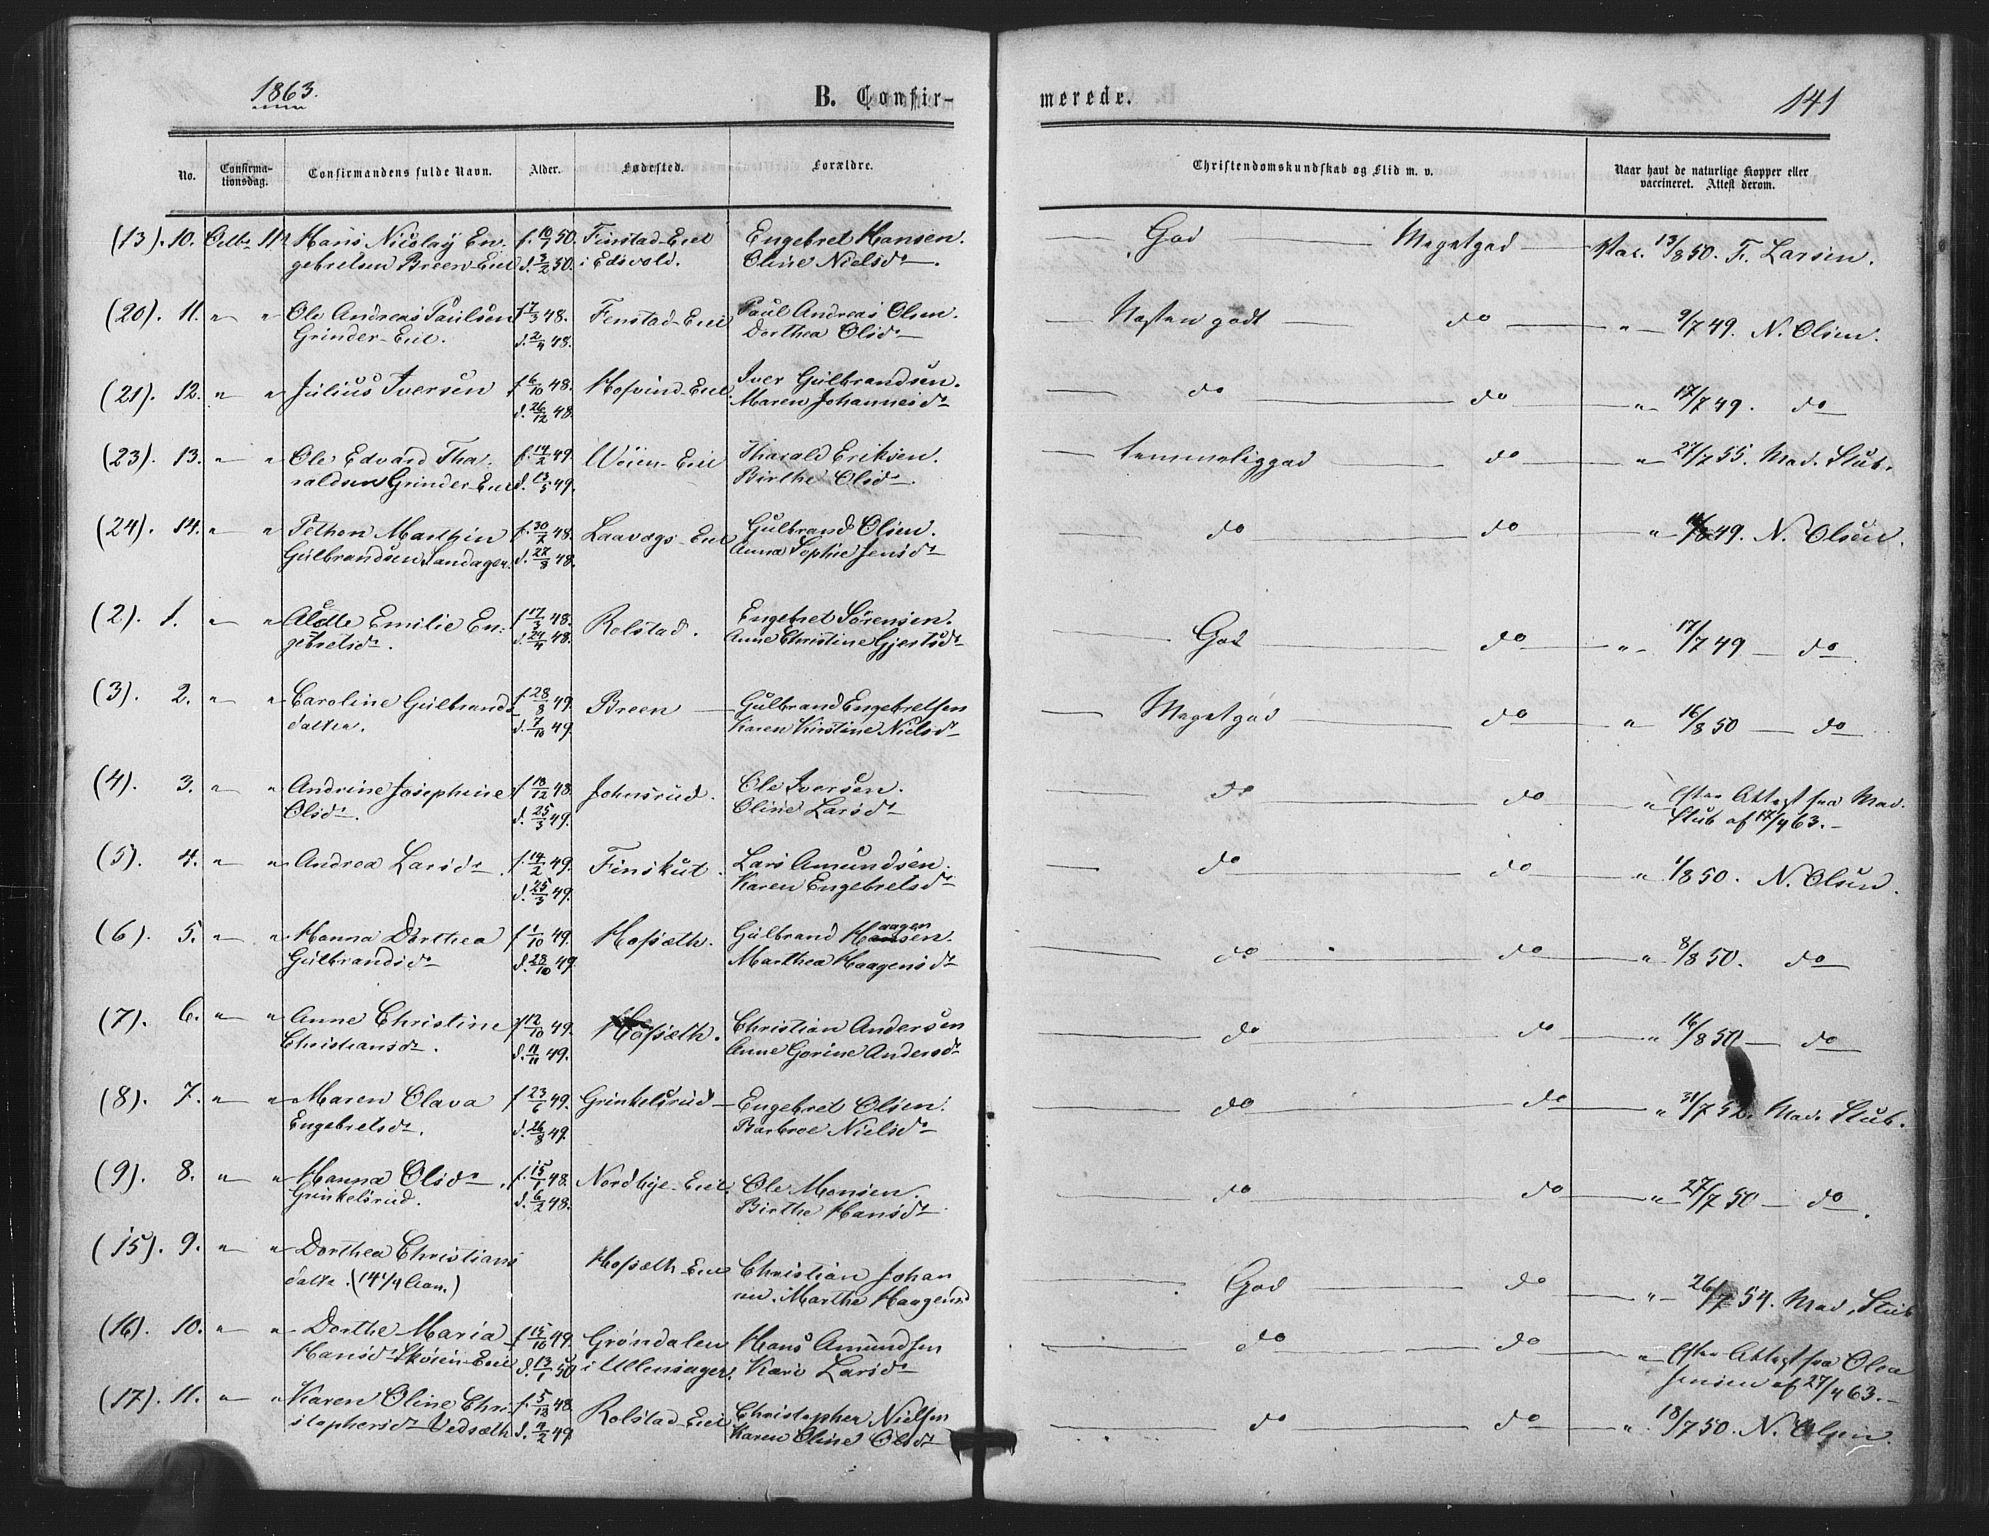 1863.
B. Confir-
merede.
141
No.
Confirma-
tionsdag.
Confirmandens fulde Navn.
Alder.
Fødested.
Forældre.
Christendomskundskab og Flid m. v.
Naar havt de naturlige Kopper eller
vaccineret. Attest derom.
(13). 10. Hans Nicolay En- f. 50. Finstad-Eiet Engebret Hansen. God Megetgod Vac. 13/8 50. F. Larsen.
gebretsen Breen-Eiet d. 3/2 50. i Edsvold. Oline Nielsd.
(20). 11. " " Ole Andreas Paulsen f. 17/3 48. Fenstad-Eiet Paul Andreas Olsen. Næsten godt do " 9/7 49. N. Olsen.
Grinder-Eiet. d. 2/4 48. Dorthea Olsd.
(21). 12. " " Julius Iversen f. 6/10 48. Hofvind-Eiet. Iver Gulbrandsen. do do " 17/7 49. do
d. 26/12 48. Maren Johannesd.
(23). 13. " " Ole Edvard Tha- f. 14/2 49. Weien-Eiet Tharald Eriksen. temmeliggod do " 27/7 55. Mad. Stub.
raldsen Grinder-Eiet d. 13/5 49. Birthe Olsd.
(24). 14. " " Pethon Marthin f. 30/7 48. Laavegs-Eiet Gulbrand Olsen. do do " 49. N. Olsen.
Gulbrandsen Sandager. d. 27/8 48. Anna Sophie Jensd.
(2). 1. " " Emilie En- f. 17/3 48. Rolstad. Engebret Sørensen. God do " 17/7 49 do
gebretsd. d. 24/4 48. Anne Christine Gjertsd.
(3). 2. " " Caroline Gulbrands f. 28/8 49. Breen Gulbrand Engebretsen Megetgod do " 16/8 50 do
datter. d. 7/10 49. Karen Kirstine Nielsd.
(4). 3. " " Andrine Josephine f. 10/12 48. Johnsrud. Ole Iversen. do do " Efter Attest fra Mad.
Olsd. d. 25/3 49. Oline Larsd. Stub af 17/4 63.
(5). 4. " " Andrea Larsd. f. 14/2 49. Finskut. Lars Amundsen. do do " 1/8 50. N. Olsen.
d. 25/3 49. Karen Engebretsd.
(6). 5. " " Hanna Dorthea f. 1/10 49. Hofsæth. Gulbrand Haagensen. do do " 8/8 50. do
Gulbrandsd. d. 28/10 49. Marthea Haagensd.
(7). 6. " " Anne Christine f. 12/10 49. Hofsæth. Christian Andersen do do " 16/8 50 do
Christiansd. d. 11/11 49. Anne Gorine Andersd.
(8). 7. " " Maren Olava f. 23/6 49. Grinkelsrud Engebret Olsen. do do " 31/7 52. Mad. Stub.
Engebretsd. d. 26/8 49. Barbroe Nielsd.
(9). 8. " " Hanna Olsd. f. 15/1 48. Nordbye-Eiet. Ole Monsen. do do " 27/7 50 do.
Grinkelsrud. d. 6/2 48. Birthe Hansd.
(15). 9. " " Dorthea Christians Hofsæth-Eiet Christian Johan God do " 26/7 54. Mad. Stub
datter. (14 1/4 Aar.) Marthe Haagensd
(16). 10. " " Dorthe Maria f. 15/10 49. Grøndalen Hans Amundsen do do " Efter Attest fra Olea
Hansd. Skøien-Eiet d. 13/1 50 i Ullensager. Kari Larsd. Jensen af 27/4 63.
(17). 11. " " Karen Oline Chri- f. 5/12 48. Rolstad-Eiet Christopher Nielsen do do " 18/7 50. N. Olsen.
stophersd. Vedsæth d. 4/2 49 Karen Oline Olsd.